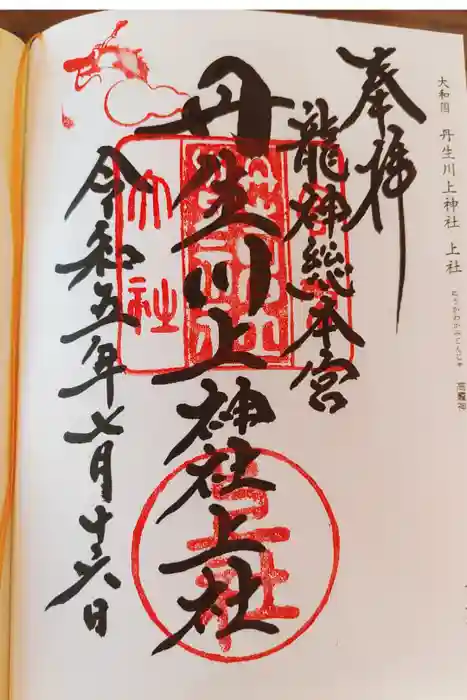 大和国 丹生川上神社 上社
奉拝
龍神総本宮
丹生川上神社上社
令和五年七月十六日